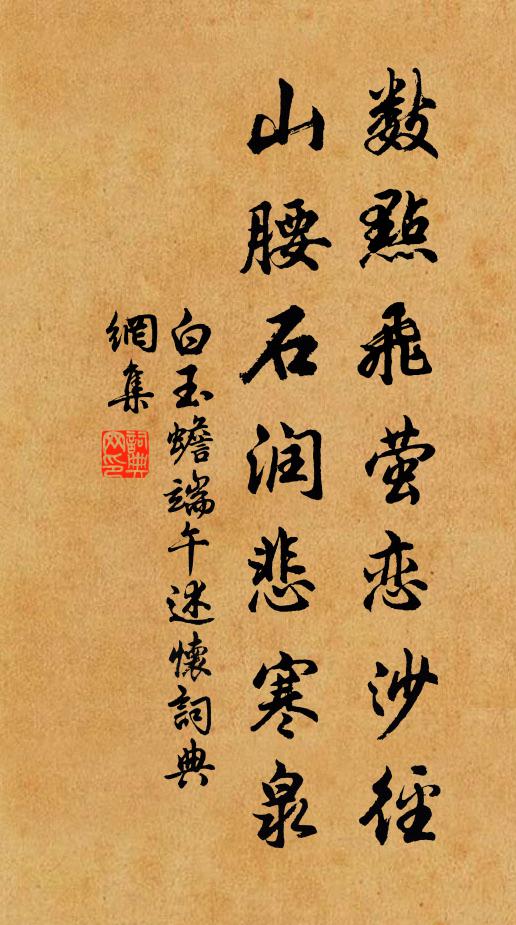 數點飛萤恋沙徑
山腰石润悲寒泉
白玉蟾端午述懷詞典
網集
詞典
网印